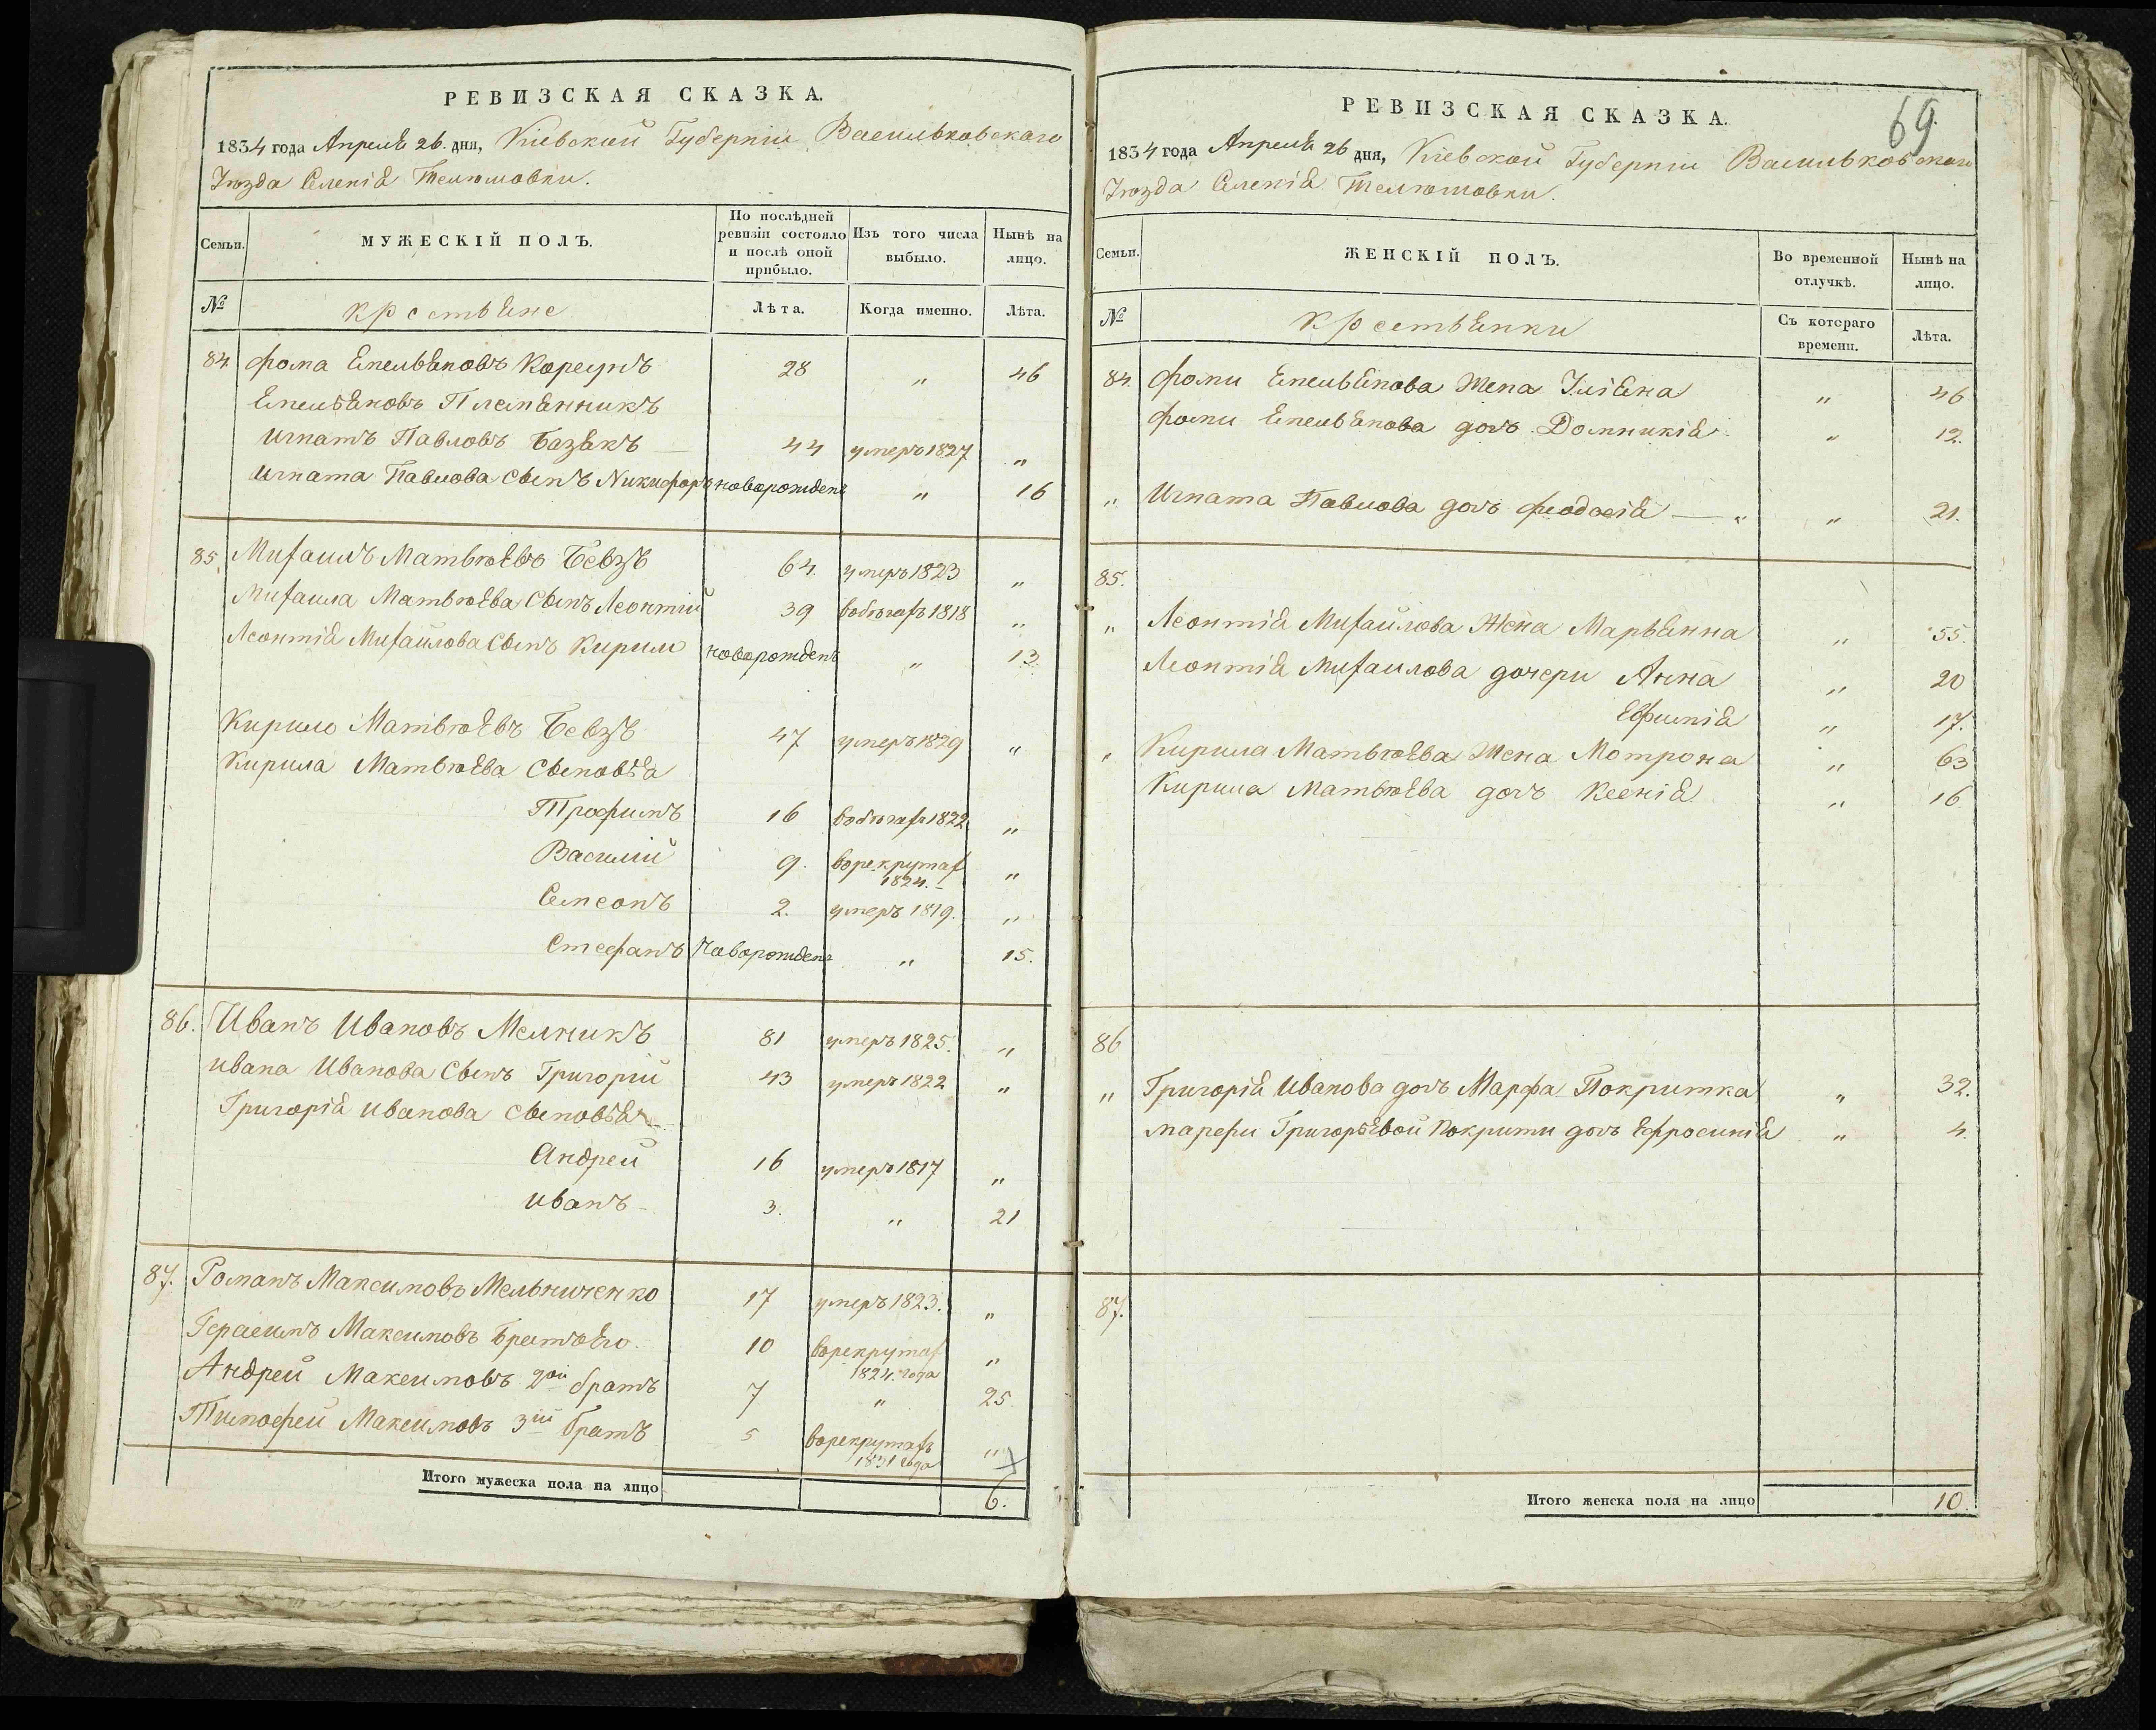 РЕВИЗСКАЯ СКАЗКА.
1834 года Апреля 26. дня, Кіевской Губерніи Васильковскаго
Уѣзда Селенія Телюшовки.
Семьи. МУЖЕСКІЙ ПОЛЪ. По послѣдней ревизіи состояло и послѣ оной прибыло. Изъ того числа выбыло. Нынѣ на лицо.
№ крстьяне Лѣта. Когда именно. Лѣта.
84. Фома Емельяновъ Корсунъ 28 „ 46
Емельяновъ Племянникъ
Игнатъ Павловъ Базякъ 44 умеръ 1827 „
Игната Павлова Сынъ Никифоръ новорожденъ „ 16
85. Михаилъ Матвѣевъ Бевзъ 64. умеръ 1823 „
Михаила Матвѣева Сынъ Леонтій 39 вобѣгахъ 1818 „
Леонтія Михайлова Сынъ Кирило новорожденъ „ 13.
Кирило Матвѣевъ Бевзъ 47 умеръ 1829 „
Кирила Матвѣева Сыновья
Трофимъ 16 вобѣгахъ 1822 „
Василій 9. ворекрутах 1824. „
Семсонъ 2. умеръ 1819. „
Стефанъ Новорожденъ „ 15.
86. Иванъ Ивановъ Мелникъ 81 умеръ 1825. „
Ивана Иванова Сынъ Григорій 43 умеръ 1822 „
Григорія Иванова Сыновья
Андрей 16 умеръ 1817 „
Иванъ 3. „ 21
87. Романъ Максимовъ Мельниченко 17 умеръ 1823. „
Герасимъ Максимовъ Братъ Его. 10 ворекрутах 1824. года „
Андрей Максимовъ 2ой братъ 7 „ 25
Тимофей Максимовъ 3ій братъ 5 ворекрутахъ 1831 года „
Итого мужеска пола на лицо 6.
69.
РЕВИЗСКАЯ СКАЗКА.
1834 года Апреля 26 дня, Кіевской Губерніи Васильковскаго
Уѣзда Селенія Телюшовки.
Семьи. ЖЕНСКІЙ ПОЛЪ. Во временной отлучкѣ. Нынѣ на лицо.
№ крсстьянки Съ котсраго времени. Лѣта.
84. Фомы Емельянова Жена Уліяна „ 46
Фомы Емельянова дочь Домникія „ 12.
„ Игната Павлова дочь Феодосія „ 21.
85.
„ Леонтія Михайлова Жена Марьянна „ 55.
Леонтія Михаилова дочери Анна „ 20
Ефимія „ 17.
„ Кирила Матвѣева Жена Мотрона „ 63
Кирила Матвѣева дочь Ксенія „ 16.
86
„ Григорія Иванова дочь Марфа Покритка „ 32.
марфи Григорьевой Покрити дочь Ефросинія „ 4.
87.
Итого женска пола на лицо 10.